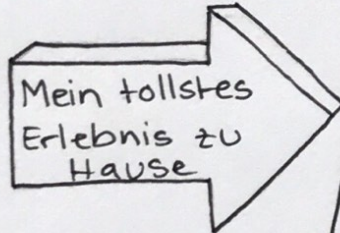 Mein tollstes
Erlebnis zu
Hause